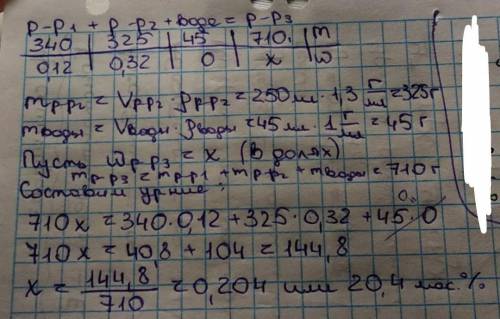 р-р1 + р-р2 + вода = р-р3
340 | 325 | 45 | 710. | m
0,12 | 0,32 | 0 | x | ω
mр-р2 = Vр-р2 · ρр-р2 = 250 мл · 1,3 г/мл = 325 г
mводы = Vводы · ρводы = 45 мл · 1 г/мл = 45 г
Пусть ωр-р3 = x (в долях)
mр-р3 = mр-р1 + mр-р2 + mводы = 710 г
Составим ур-ние:
710x = 340·0,12 + 325·0,32 + 45·0
710x = 40,8 + 104 = 144,8
x = 144,8/710 = 0,204 или 20,4 мас.%